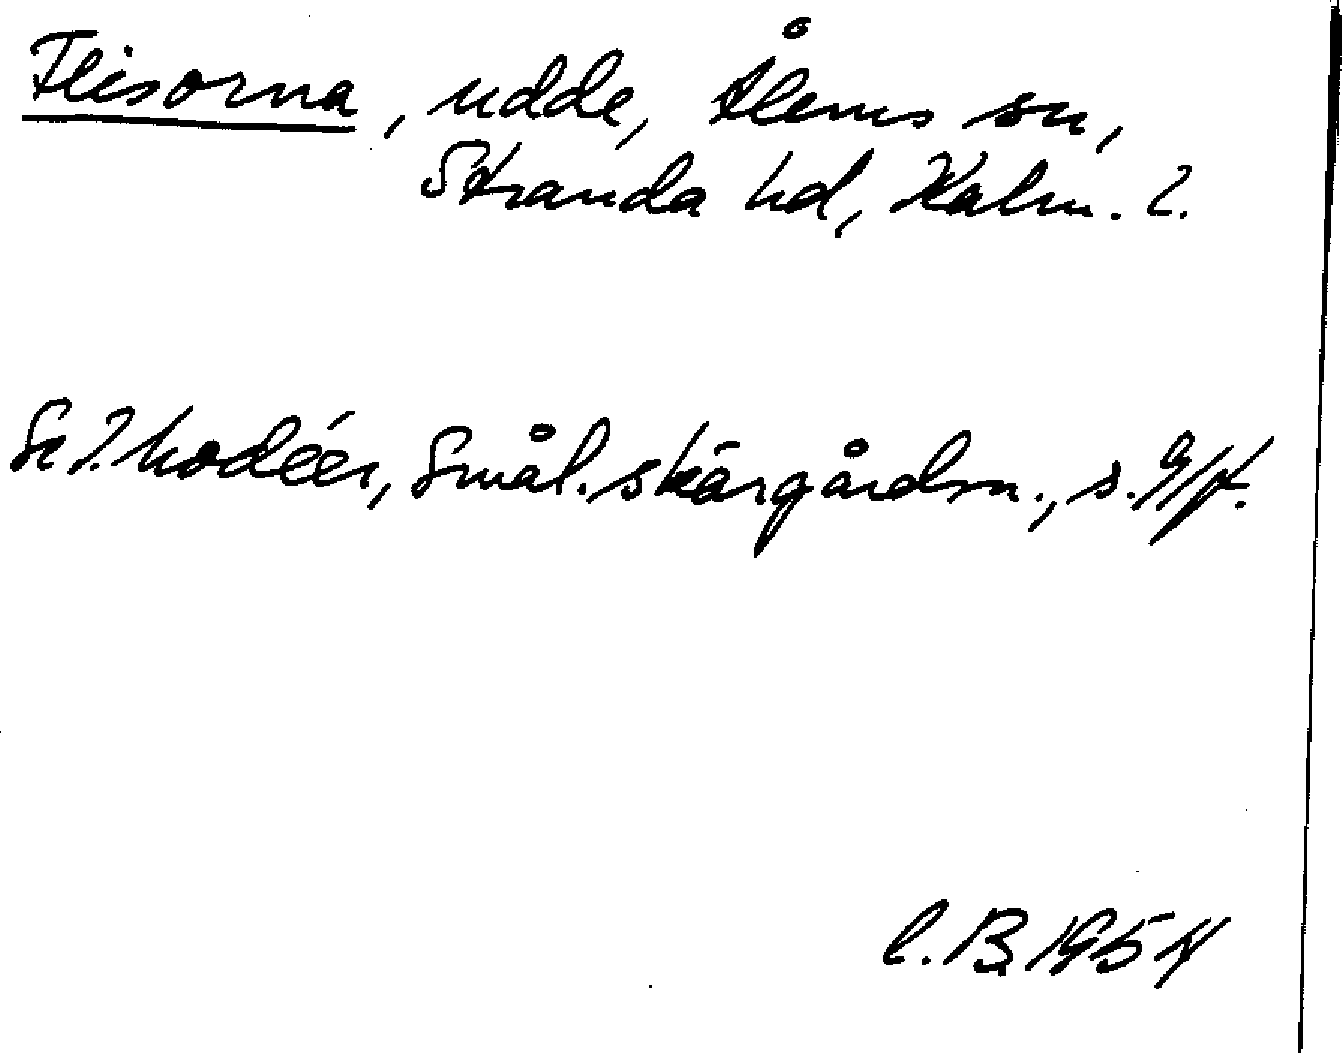 Flisorna, udde, Ålems sn,
Stranda hd, Kalm. l.
Se I. Modéer, Smål. skärgårdsn., s. 9/f.
C. B. 1954